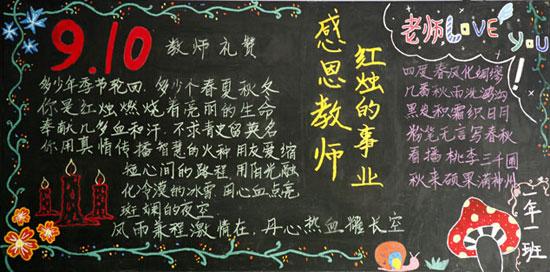 9.10
教师礼赞
多少年季节轮回，多少个春夏秋冬
你是红烛燃烧着亮丽的生命
奉献几多血和汗，不求青史留英名
你用真情传播智慧的火种 用友爱缩
短心间的路程 用阳光融
化冷漠的冰雪 用心血点亮
斑斓的夜空
风雨兼程激情在，丹心热血耀长空
感恩教师
红烛的事业
老师LOVE you!
四度春风化绸缪
几番秋雨洗鸿沟
黑发积霜织日月
粉笔无言写春秋
看播桃李三千圃
秋来硕果满神州
一年一班